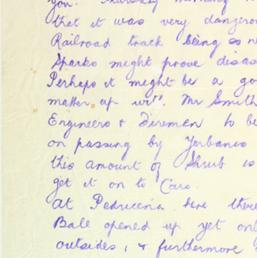 you. Thursday morning
that it was very dangero
Railroad track being so n
Sparks might prove disas
Perhaps it might be a go
matter up with Mr Smith
Engineers & Firemen to be
on passing by Yerbanis
this amount of Shrub is
get it on to Cars.
At Pedricena here there
Bale opened up yet onl
outsides, & furthermore